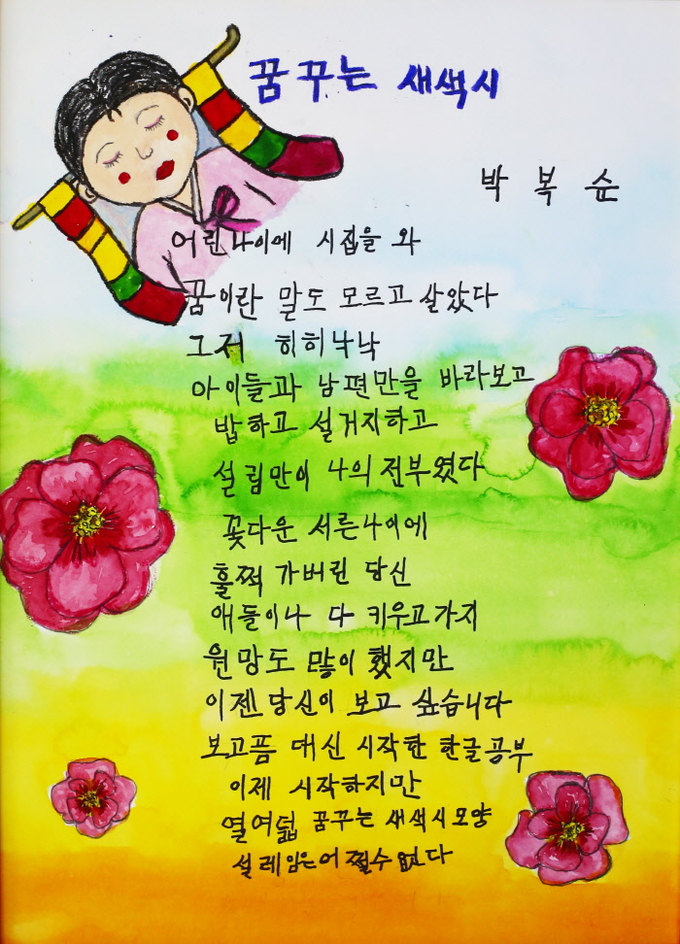 꿈꾸는 새색시
박복순
어린나이에 시집을 와
꿈이란 말도 모르고 살았다
그저 히히낙낙
아이들과 남편만을 바라보고
밥하고 설거지하고
설림만이 나의 전부였다
꽃다운 서른나이에
훌쩍 가버린 당신
애들이나 다 키우고가지
원망도 많이 했지만
이젠 당신이 보고 싶습니다
보고픔 대신 시작한 한글공부
이제 시작하지만
열여덟 꿈꾸는 새색시모양
설레임은어쩔수없다